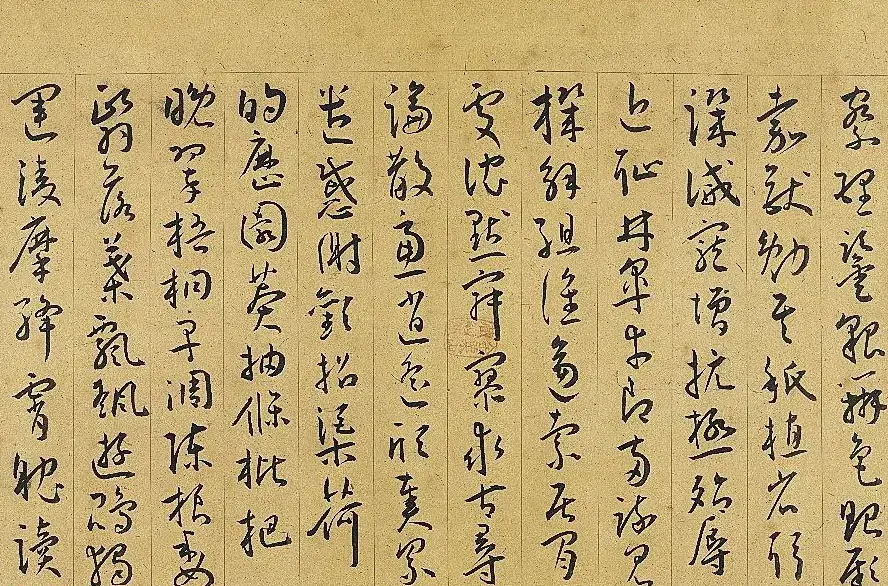 察理鑒貌辨色貽厥
嘉猷勉其祗植省躬
譏誡寵增抗極殆辱
近恥林皋幸即兩疏見
機解組誰逼索居閑
處沈默寂寥求古尋
論散慮逍遙欣奏累
遣慼謝歡招渠荷
的歷園莽抽條枇杷
晚翠梧桐早凋陳根委
翳落葉飄颻遊鵾獨
運凌摩絳霄耽讀